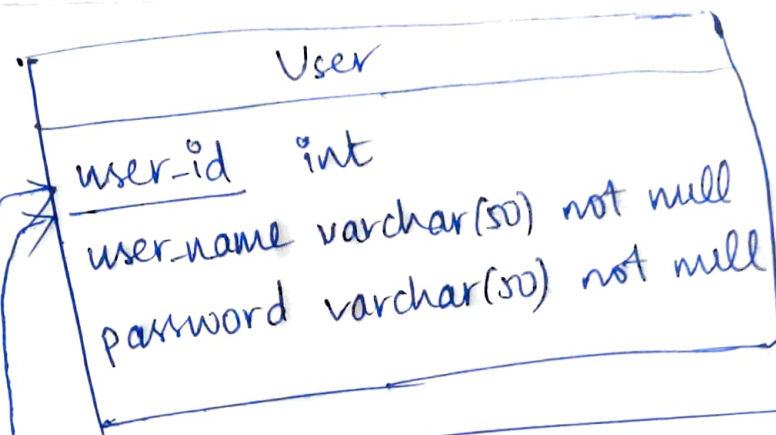 User
user_id int
user_name varchar(50) not null
password varchar(50) not null